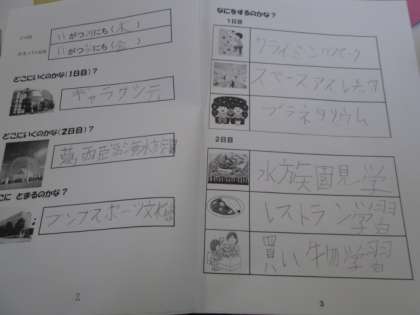 がつ にち(木)
がつ にち(金)
どこにいくのかな(1日目)?
ギャラクシティ
どこにいくのかな(2日目)?
葛西臨海水族園
とまるのかな?
2
なにをするのかな?
1日目
クライミングパーク
スペースアスレチック
プラネタリウム
2日目
水族園見学
レストラン学習
買い物学習
3